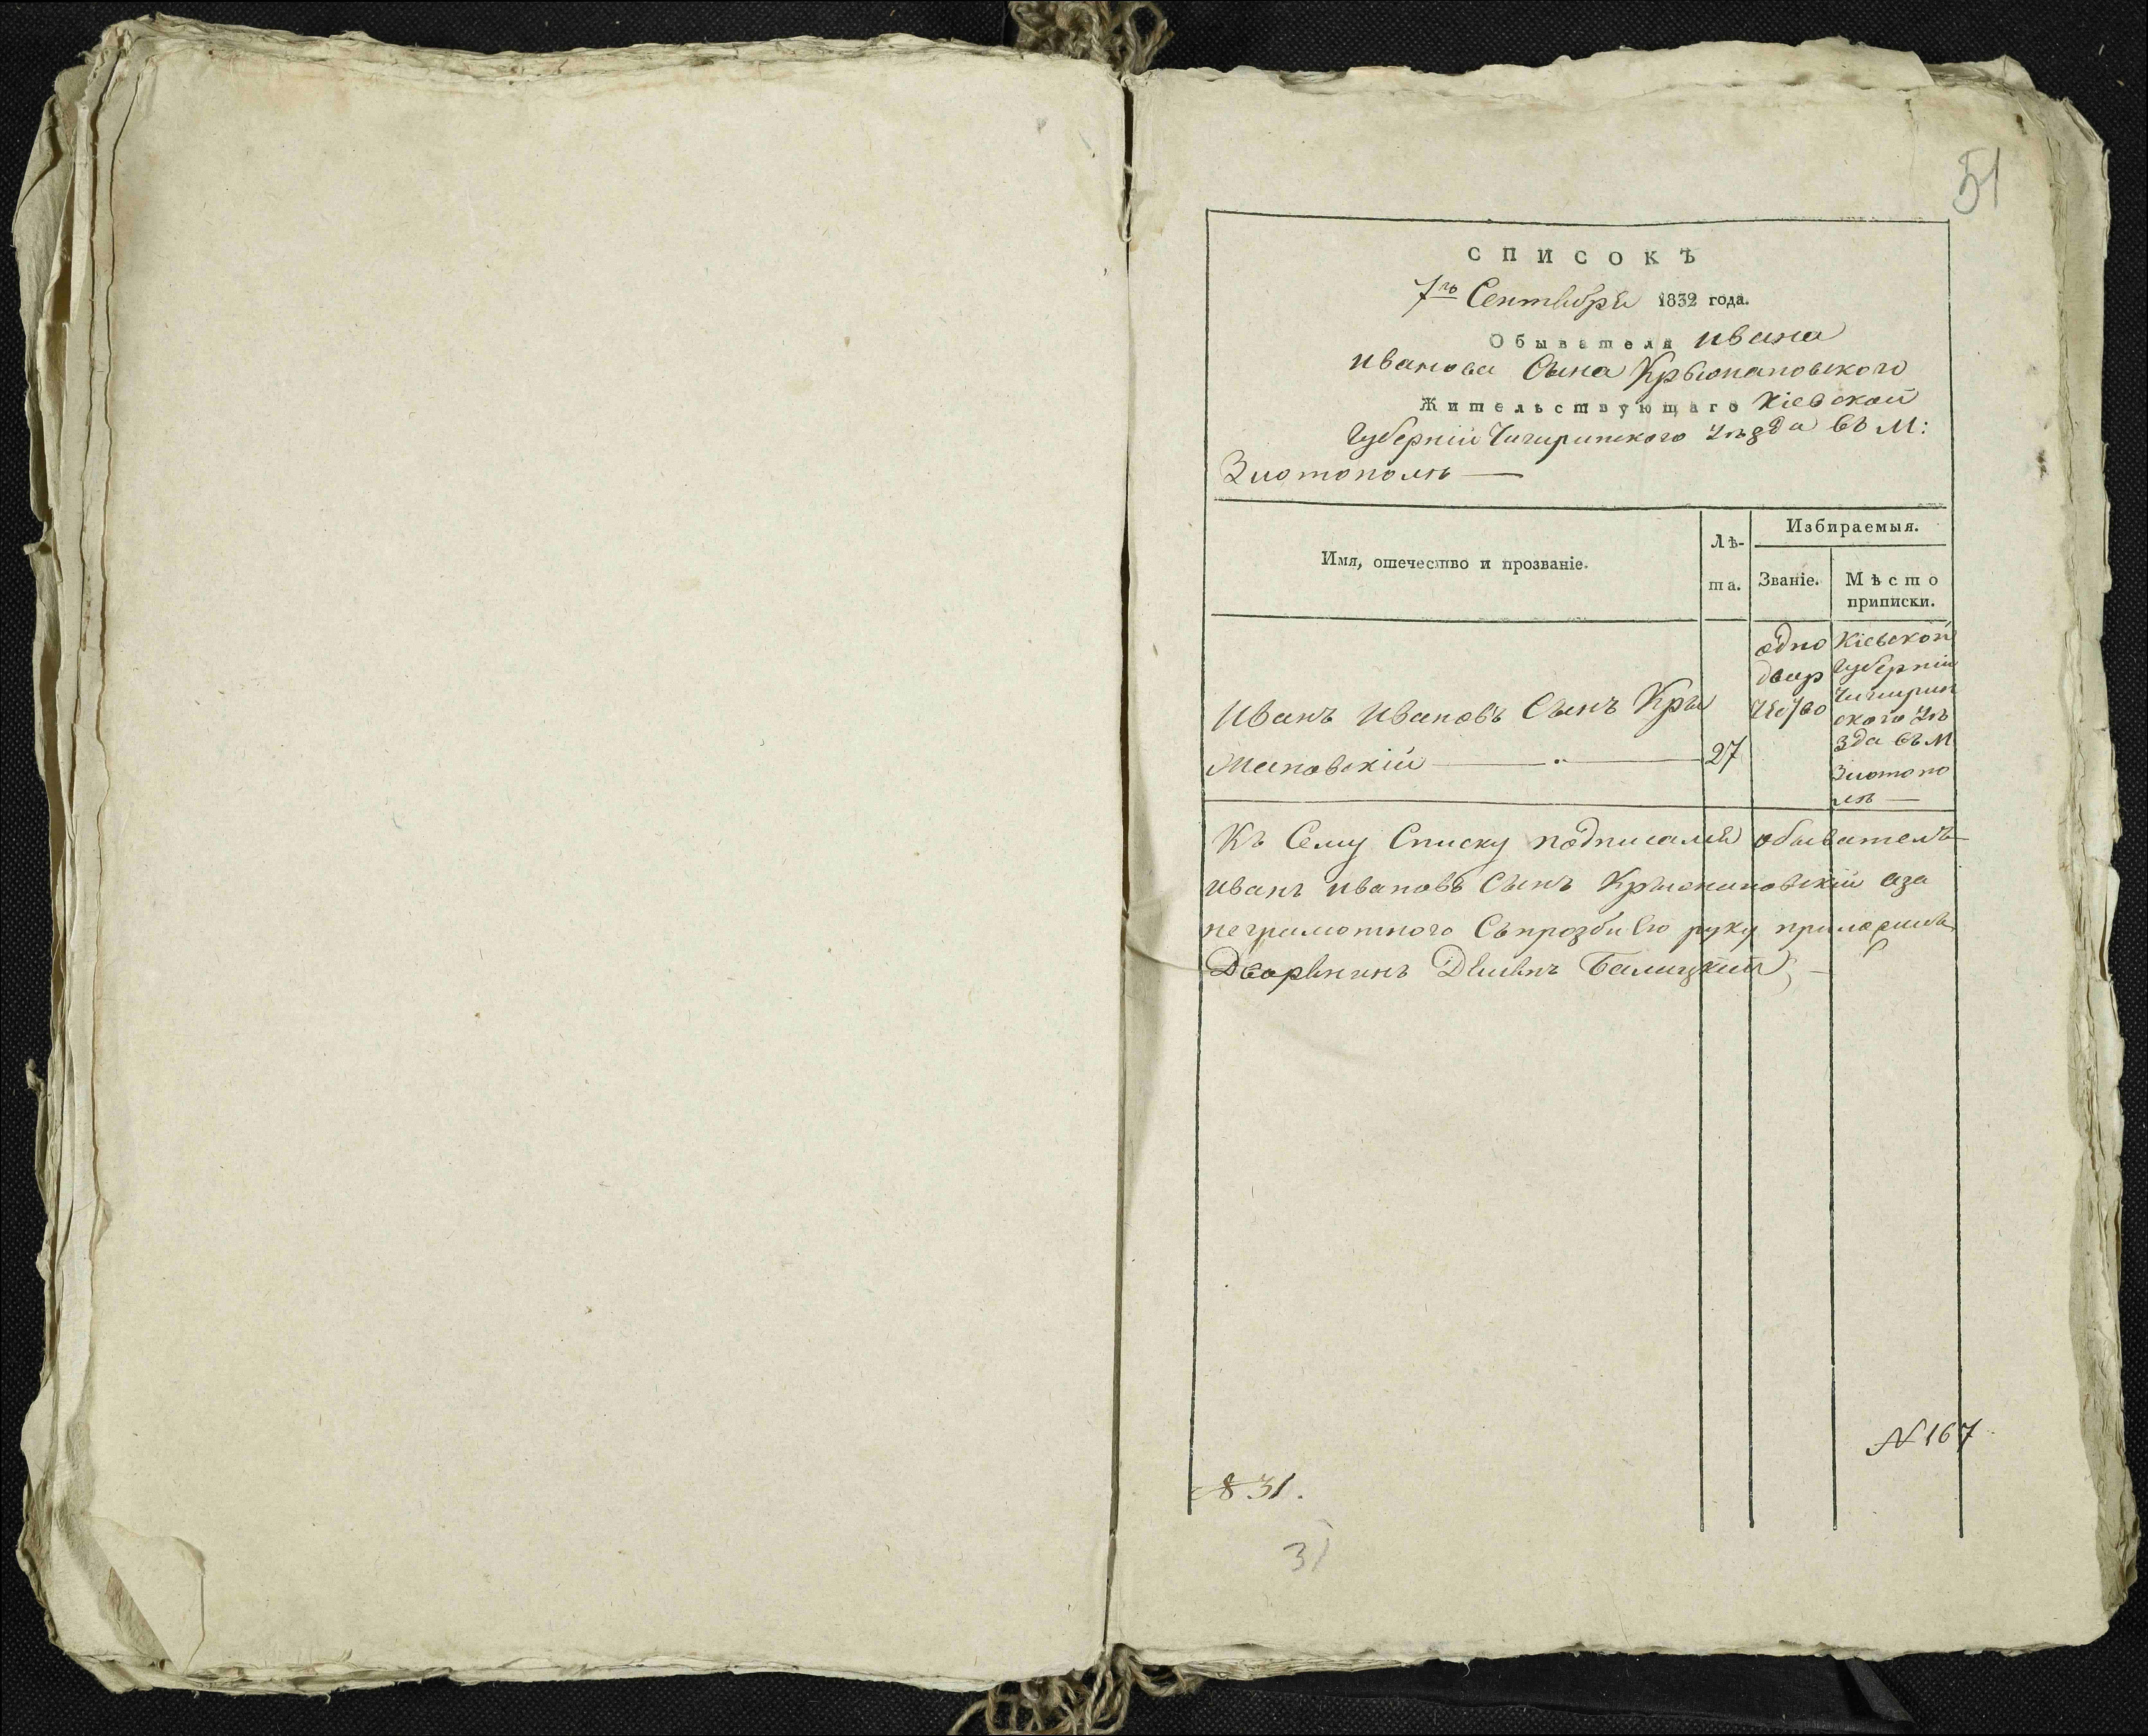 51
СПИСОКЪ
7го Сентября 1832 года.
Обывателя Ивана
Иванова Сына Крыжановского
Жительствующаго Кіевской
Губерніи Чигиринского Уѣзда въ М:
Златополѣ —
Имя, отечество и прозваніе.
Лѣ-
та.
Избираемыя.
Званіе.
Мѣсто
приписки.
Иванъ Ивановъ Сынъ Кры
жановскій
27
одно
двор
Кіевской
Губерніи
Чигирин
ского Уѣ
зда въ М
Златопо
лѣ —
Къ Сему Списку подписался обыватель
Иванъ Ивановъ Сынъ Крыжановскій аза
неграмотного Съпрозби Его руку приложилъ
Дворянинъ Балицкій
№ 167
№ 31.
31